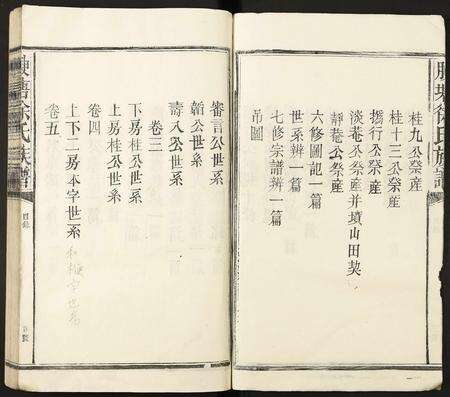 桂九公祭産
桂十三公祭産
攜行公祭産
淡菴公祭産并墳山田契
靜菴公祭産
六修圖記一篇
世系辨一篇
七修宗譜辨一篇
吊圖
審言公世系
韜公世系
濤入公世系
卷三
下房桂公世系
上房桂公世系
卷四
上下二房本字世系
卷五
徐氏族譜
目錄